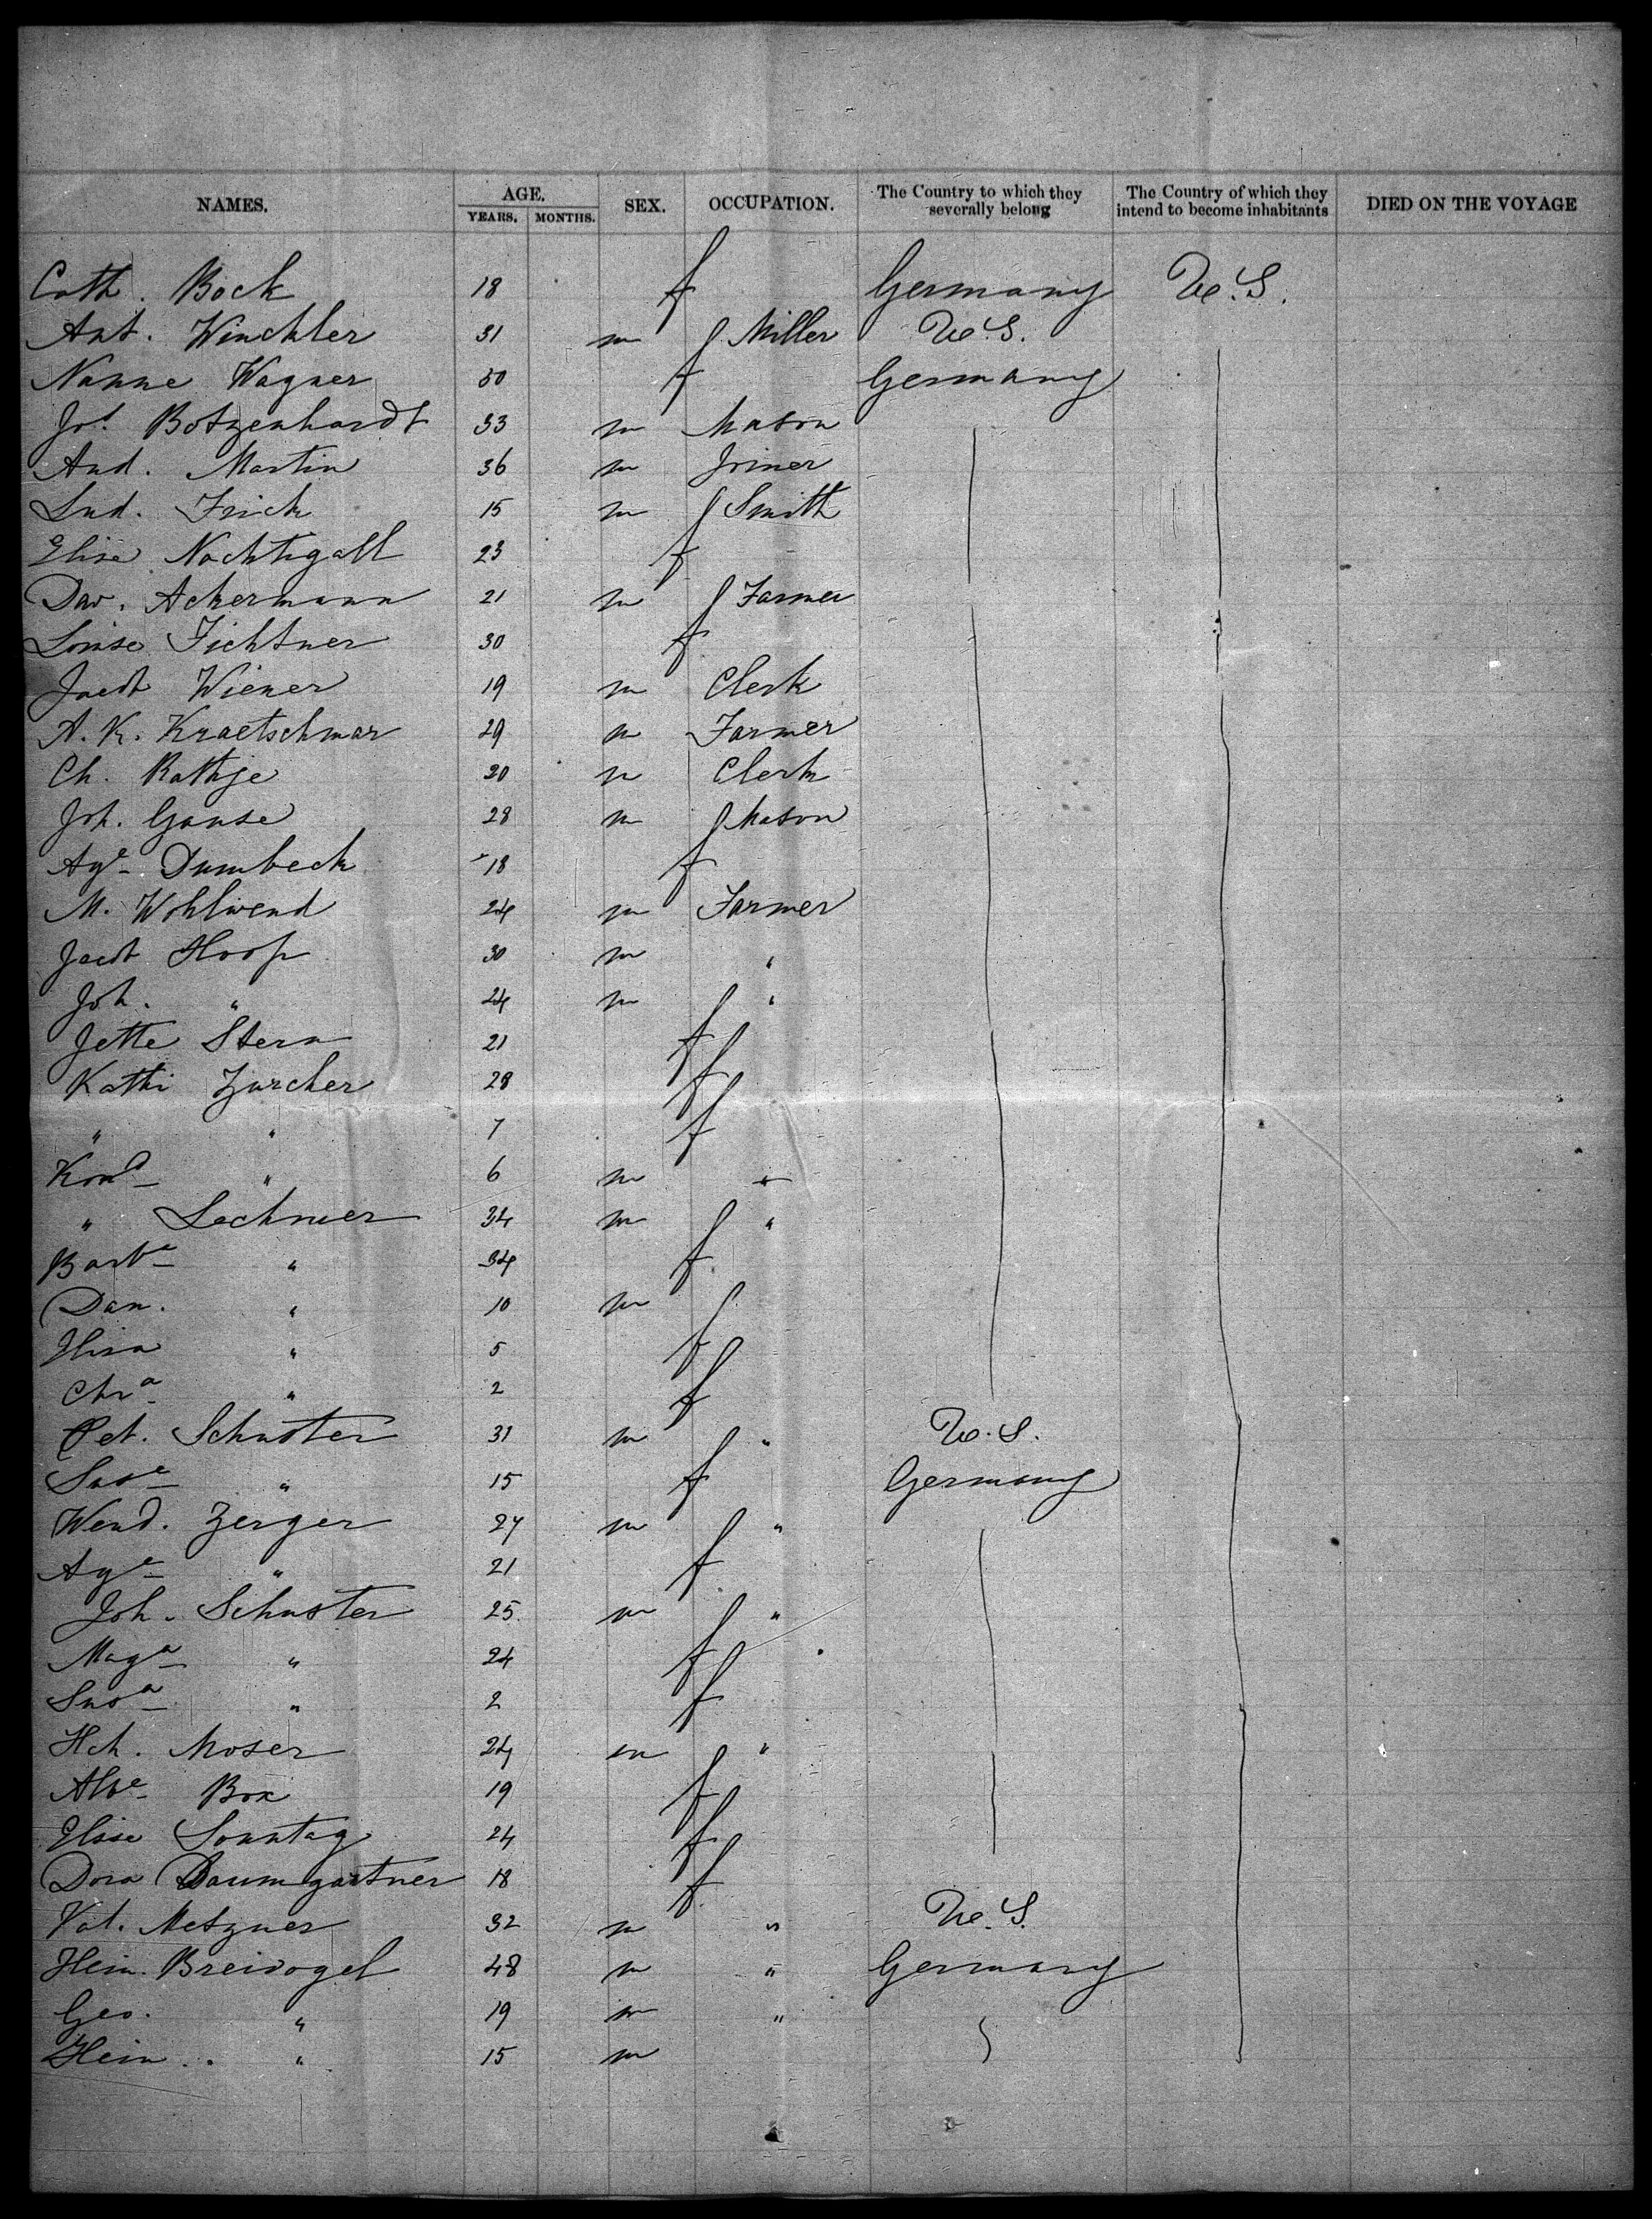 NAMES. AGE. SEX. OCCUPATION. The Country to which they severally belong The Country of which they intend to become inhabitants DIED ON THE VOYAGE
YEARS. MONTHS.
Cath. Bock 18 f Germany U.S.
Ant. Winckler 31 m Miller U.S.
Nanne Wagner 50 f Germany
Jos. Botzenhardt 33 m Mason
And. Martin 36 m Joiner
Lud. Frick 15 m Smith
Elise Nachtigall 23 f
Dav. Ackermann 21 m Farmer
Louise Fichtner 30 f
Jacob Wiener 19 m Clerk
A. K. Kraetschmar 29 m Farmer
Ch. Rathje 20 m Clerk
Joh. Ganse 28 m Mason
Age Dumbeck 18 f
M. Wohlwend 24 m Farmer
Jacob Hoop 30 m "
Joh. " 24 m "
Jette Stern 21 f
Kathi Zurcher 28 f
" " 7 f
Kond " 6 m "
" Lechner 34 m "
Barbe " 34 f
Dan. " 10 m
Elisa " 5 f
Chra " 2 f
Pet. Schuster 31 m " U.S.
Suse " 15 f Germany
Wend. Zerger 27 m "
Age " 21 f
Joh. Schuster 25 m "
Maga " 24 f
Susa " 2 f
Hch. Moser 24 m "
Albe Box 19 f
Elise Sonntag 24 f
Dora Baumgartner 18 f
Val. Metzner 32 m " U.S.
Hein. Breivogel 48 m " Germany
Geo. " 19 m "
Hein. " 15 m